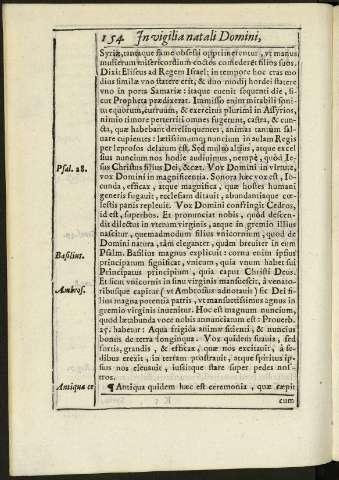 154 In vigilia natali Domini,
Syriæ, tantaque fame obsessi opprimerentur, vt manus
mulierum misericordium coctos comederet filios suos.
Dixit Eliseus ad Regem Israel; in tempore hoc cras mo
dius similæ vno statere erit, & duo modij hordei statere
vno in porta Samariæ: itaque euenit sequenti die, si
cut Propheta prædixerat. Immisso enim mirabili soni-
tu equorum, curruum, & exercitus plurimi in Assyrios,
nimio timore perterriti omnes fugerunt, castra, & cun-
cta, quæ habebant derelinquentes, animas tantum sal-
uare cupientes: lætissimumq; nuncium in aulam Regis
per leprosos delatum est. Sed multò altius, atque excel
sius nuncium nos hodie audiuimus, nempè, quòd Ie-
Psal. 28.
sus Christus filius Dei, &cæt. Vox Domini in virtute,
vox Domini in magnificentia. Sonora hæc vox est, io-
cunda, efficax, atque magnifica, quæ hostes humani
generis fugauit, ecclesiam ditauit, abundantiaque cœ-
lestis panis repleuit. Vox Domini confringit Cedros,
id est, superbos. Et pronunciat nobis, quòd descen-
dit dilectus in vterum virginis, atque in gremio illius
nascitur, quemadmodum filius vnicornium, quod de
Domini natura, tàm eleganter, quàm breuiter in eum
Basilius.
Psalm. Basilius magnus explicuit: cornu enim ipsius
principatum significat, vnicum, quia vnum habet sui
Principatus principium, quia caput Christi Deus.
Et sicut vnicornis in sinu virginis mansuescit, à venato-
Ambros.
ribusque capitur (vt Ambrosius adnotauit) sic Dei fi-
lius magna potentia patris, vt mansuetissimus agnus in
gremio virginis inuenitur. Hoc est magnum nuncium,
quod lætabunda voce nobis annunciatum est: Prouerb.
25. habetur: Aqua frigida animæ sitienti, & nuncius
bonus de terra longinqua. Vox quidem suauis, sed
fortis, grandis, & efficax, quæ nos excitauit, à se-
dibus erexit, in terram prostrauit, atque spiritus ip-
sius nos eleuauit, iussitque stare super pedes nos-
tros.
Antiqua ce
¶ Antiqua quidem hæc est ceremonia, quæ cœpit
cum